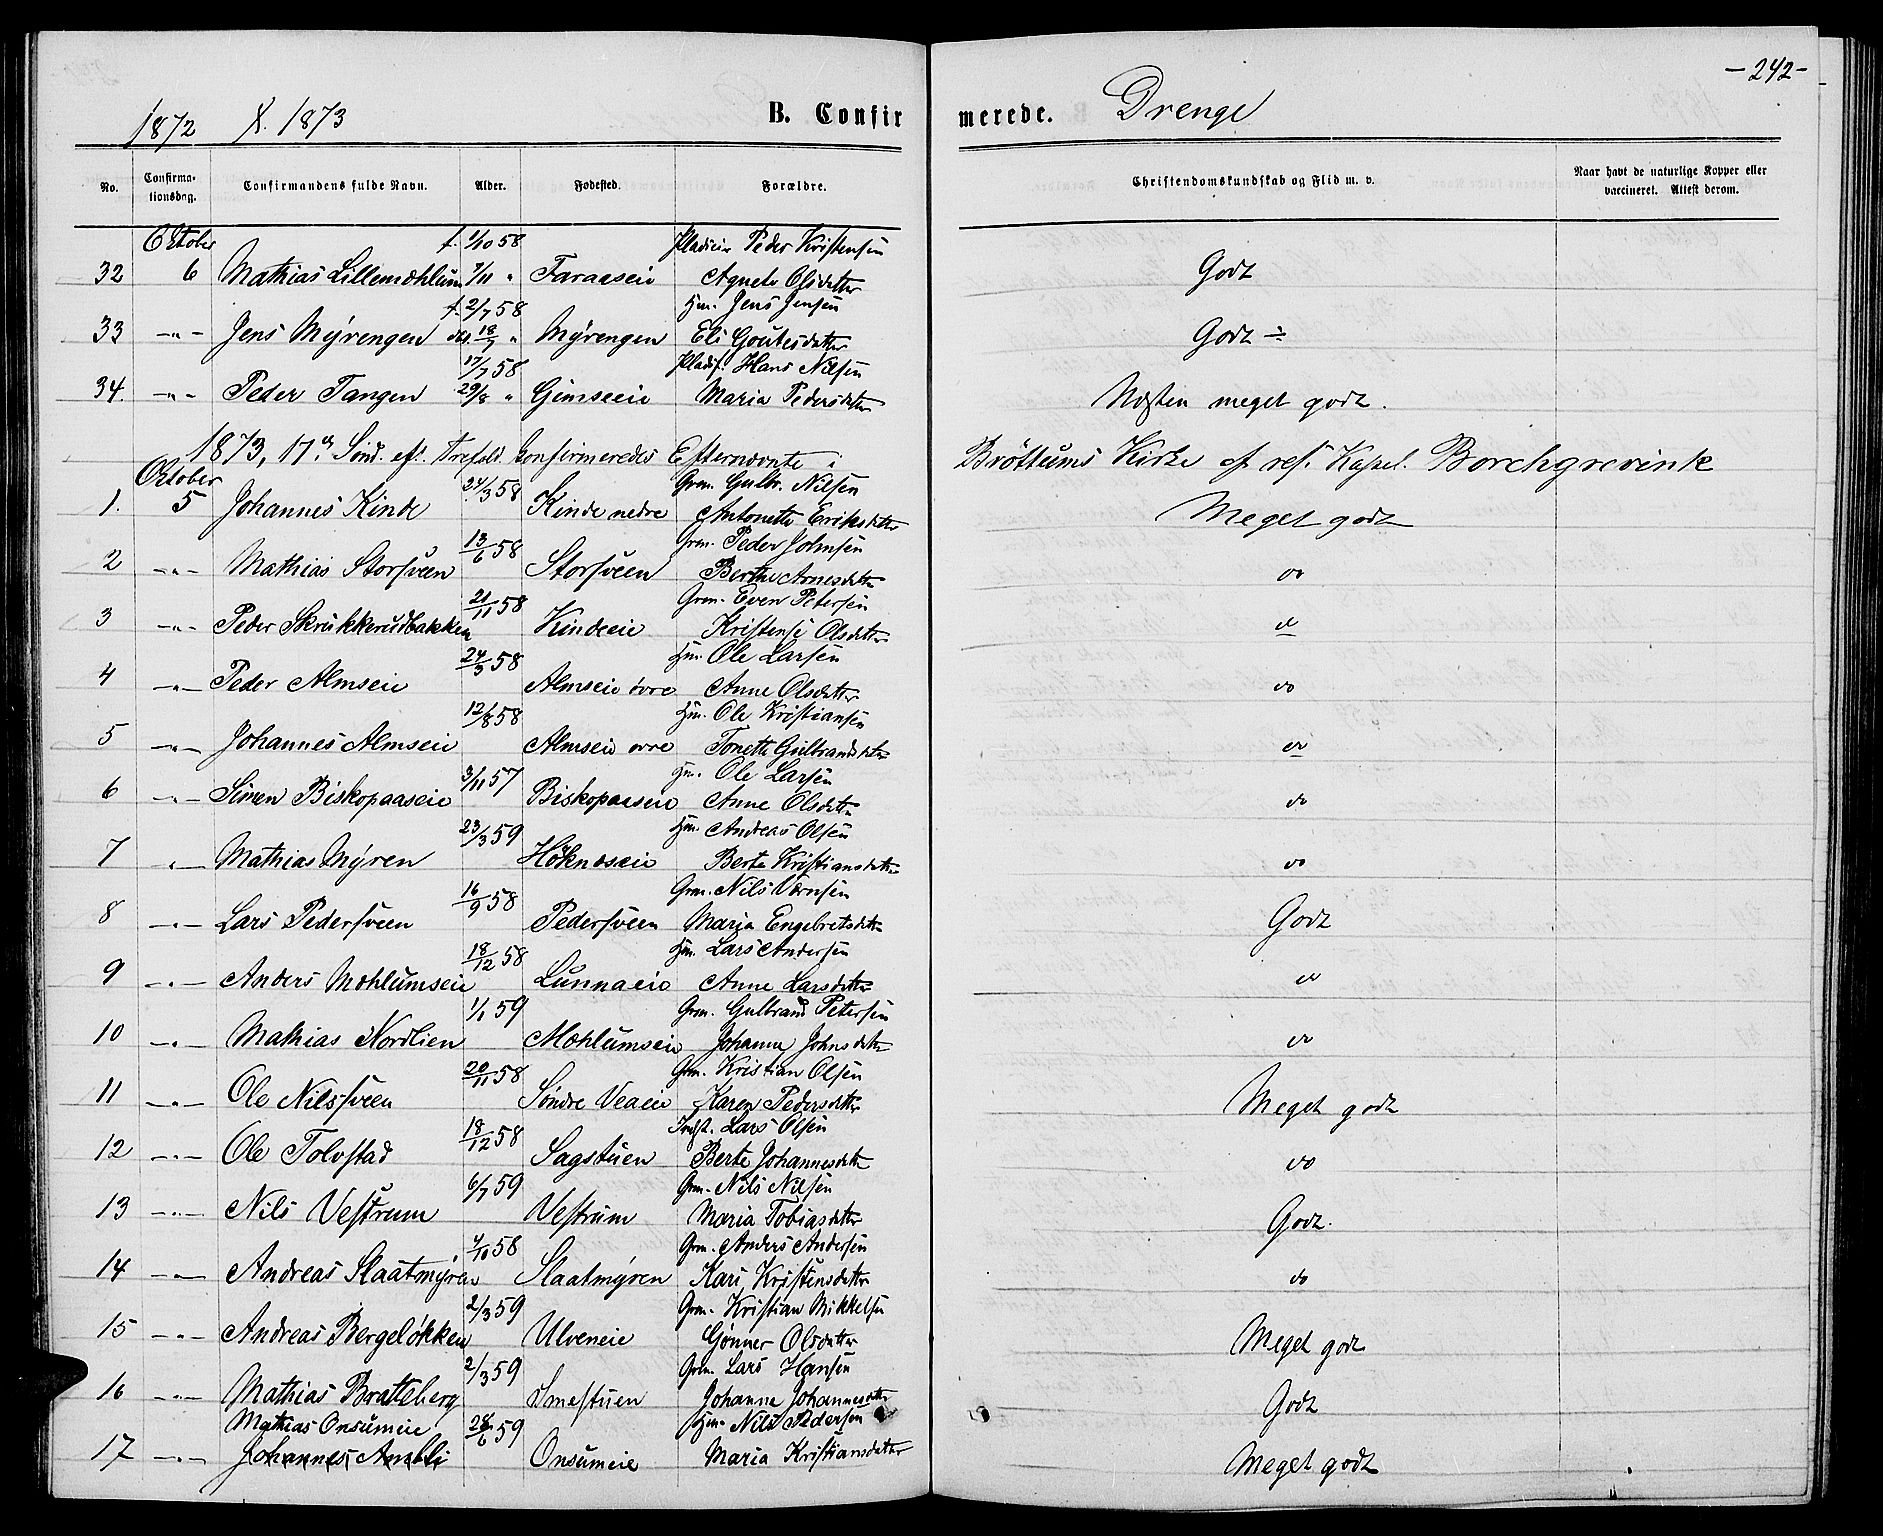 -242-
1872 & 1873 B. Confirmerede. Drenge
No. Confirmationsdag. Confirmandens fulde Navn. Alder. Fødested. Forældre. Christendomskundskab og Flid m. v. Naar havt de naturlige Kopper eller vaccineret. Attest derom.
Oktober f. 1/10 58 Peder Kristensen
32 6 Mathias Lillemæhlum 7/11 " Faraaseie Agnete Olsdatter Godt
f. 2/7 58 Hm. Jens Jensen
33 -"- Jens Myrengen 18/7 " Myrengen Eli Goutesdatter Godt ÷
17/7 58 Hans Nilsen
34. -"- Peder Tangen 29/8 " Gimseeie Maria Pedersdatter Næsten meget godt.
1873, 17de Sönd. eft. Trefold. Konfirmeredes Efternævnte i Bröttums Kirke af res. Kapel. Borchgrevink
Oktober 24/3 58 Grm. Gulbr. Nilsen
1. 5 Johannes Kinde Kinde nedre Antonette Eriksdatter Meget godt
13/6 58 Grm. Peder Johnsen
2 -"- Mathias Storsveen Storsveen Berthe Arnesdatter do
21/11 58 Grm. Even Petersen
3 -"- Peder Skrukkerudbakken Kindeeie Kristense Olsdatter do
24/3 58 Hm. Ole Larsen
4 -"- Peder Almseie Almseie övre Anne Olsdatter do
12/8 58 Hm. Ole Kristiansen
5 -"- Johannes Almseie Almseie ovre Tonette Gulbrandsdatter do
3/11 57 Hm. Ole Larsen
6 -"- Simen Biskopaaseie Biskopaaseie Anne Olsdatter do
23/3 59 Hm. Andreas Olsen
7 -"- Mathias Myren Höknæseie Berte Kristiansdatter do
16/9 58 Grm. Nils Larsen
8 -"- Lars Pedersveen Pedersveen Maria Engebretsdatter Godt
18/12 58 Hm. Lars Andersen
9 -"- Anders Mæhlumseie Lunnaeie Anne Larsdatter do
1/1 59 Grm. Gulbrand Petersen
10 -"- Mathias Nordlien Mæhlumseie Johanne Johnsdatter do
20/11 58 Grm. Kristian Olsen
11 -"- Ole Nilssveen Söndre Veaeie Karen Pedersdatter Meget godt
18/12 58 Indst. Lars Olsen
12 -"- Ole Tolvstad Sagstuen Berte Johannesdatter do
6/7 59 Grm. Nils Nilsen
13 -"- Nils Vestrum Vestrum Maria Tobiasdatter Godt.
4/10 58 Grm. Anders Andersen
14 -"- Andreas Slaatmyren Slaatmyren Kari Kristensdatter do
2/3 59 Grm. Kristian Mikkelsen
15 -"- Andreas Bergelökken Ulveneie Gönner Olsdatter Meget godt
2/3 59 Grm. Lars Hansen
16 -"- Mathias Bratteberg Smestuen Johanne Johannesdatter Godt
Mathias Onsumeie 28/6 59 Hm. Nils Pedersen
17 -"- Johannes Amlli Onsumeie Maria Kristiansdatter Meget godt